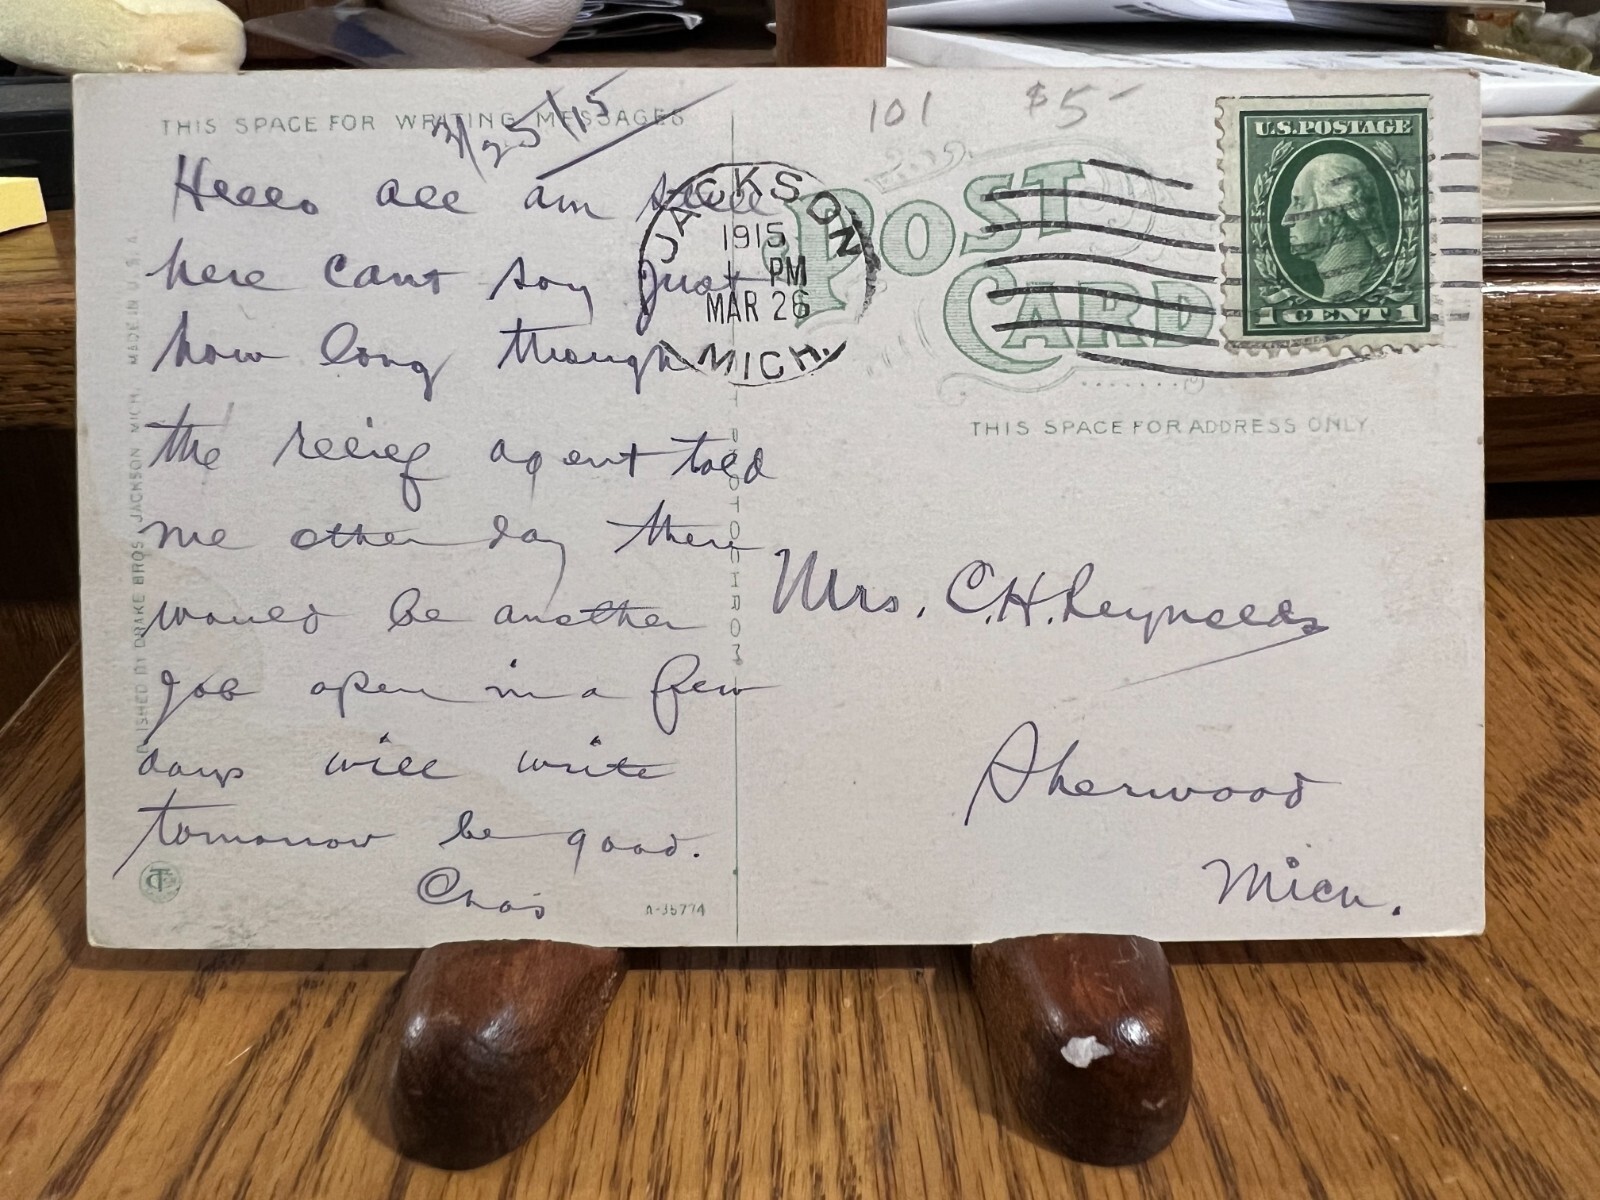 THIS SPACE FOR WRITING MESSAGES
3/25/15
Hello all am still
here cant say just
how long though
the relief agent told
me other day there
would be another
job open in a few
days will write
tomorrow be good.
Chas
A-35774
PUBLISHED BY DRAKE BROS. JACKSON MICH. MADE IN U.S.A.
PHOTOCHROM
101 $5-
JACKSON
1915
1 PM
MAR 26
MICH.
POST
CARD
U.S. POSTAGE
1 CENT 1
THIS SPACE FOR ADDRESS ONLY.
Mrs. C.H. Reynolds
Sherwood
Mich.